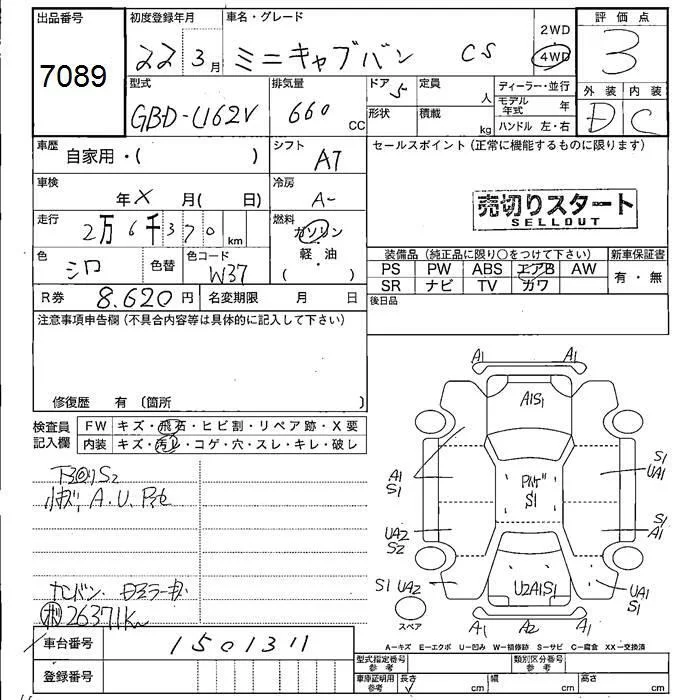 出品番号 初度登録年月 車名・グレード 2WD 評価点
7089 22年3月 ミニキャブバン CS 4WD 3
型式 排気量 ドア 定員 ディーラー・並行 外装 内装
GBD-U62V 660 CC 5 人 モデル年式 年 D C
形状 積載 kg ハンドル 左・右
車歴 自家用・( ) シフト AT セールスポイント (正常に機能するものに限ります)
車検 年 X 月( 日) 冷房 A-
売切りスタート
SELLOUT
走行 2万6千370km 燃料 ガソリン
軽・油
( )
色 シロ 色替 色コード W37
装備品 (純正品に限り○をつけて下さい) 新車保証書
PS PW ABS エアB AW 有・無
SR ナビ TV カワ
R券 8.620円 名変期限 月 日 後日品
注意事項申告欄 (不具合内容等は具体的に記入して下さい)
修復歴 有 (箇所 )
検査員 FW キズ・飛石・ヒビ割・リペア跡・X要
記入欄 内装 キズ・汚れ・コゲ・穴・スレ・キレ・破レ
下回りS2
小キズ, A.U.
26371Km
A1 A1
A1S1
A1
S1
S1
UA1
S1
UA2
S2
S1
A1
S1 UA2
U2A1S1
UA1
S1
スペア
A1 A2 A1
車台番号 1501311
登録番号
A-キズ E-エクボ U-凹み W-補修跡 S-サビ C-腐食 XX-交換済
型式指定番号 参考 類別区分番号 参考
車庫証明用 参考 長さ cm 幅 cm 高さ cm